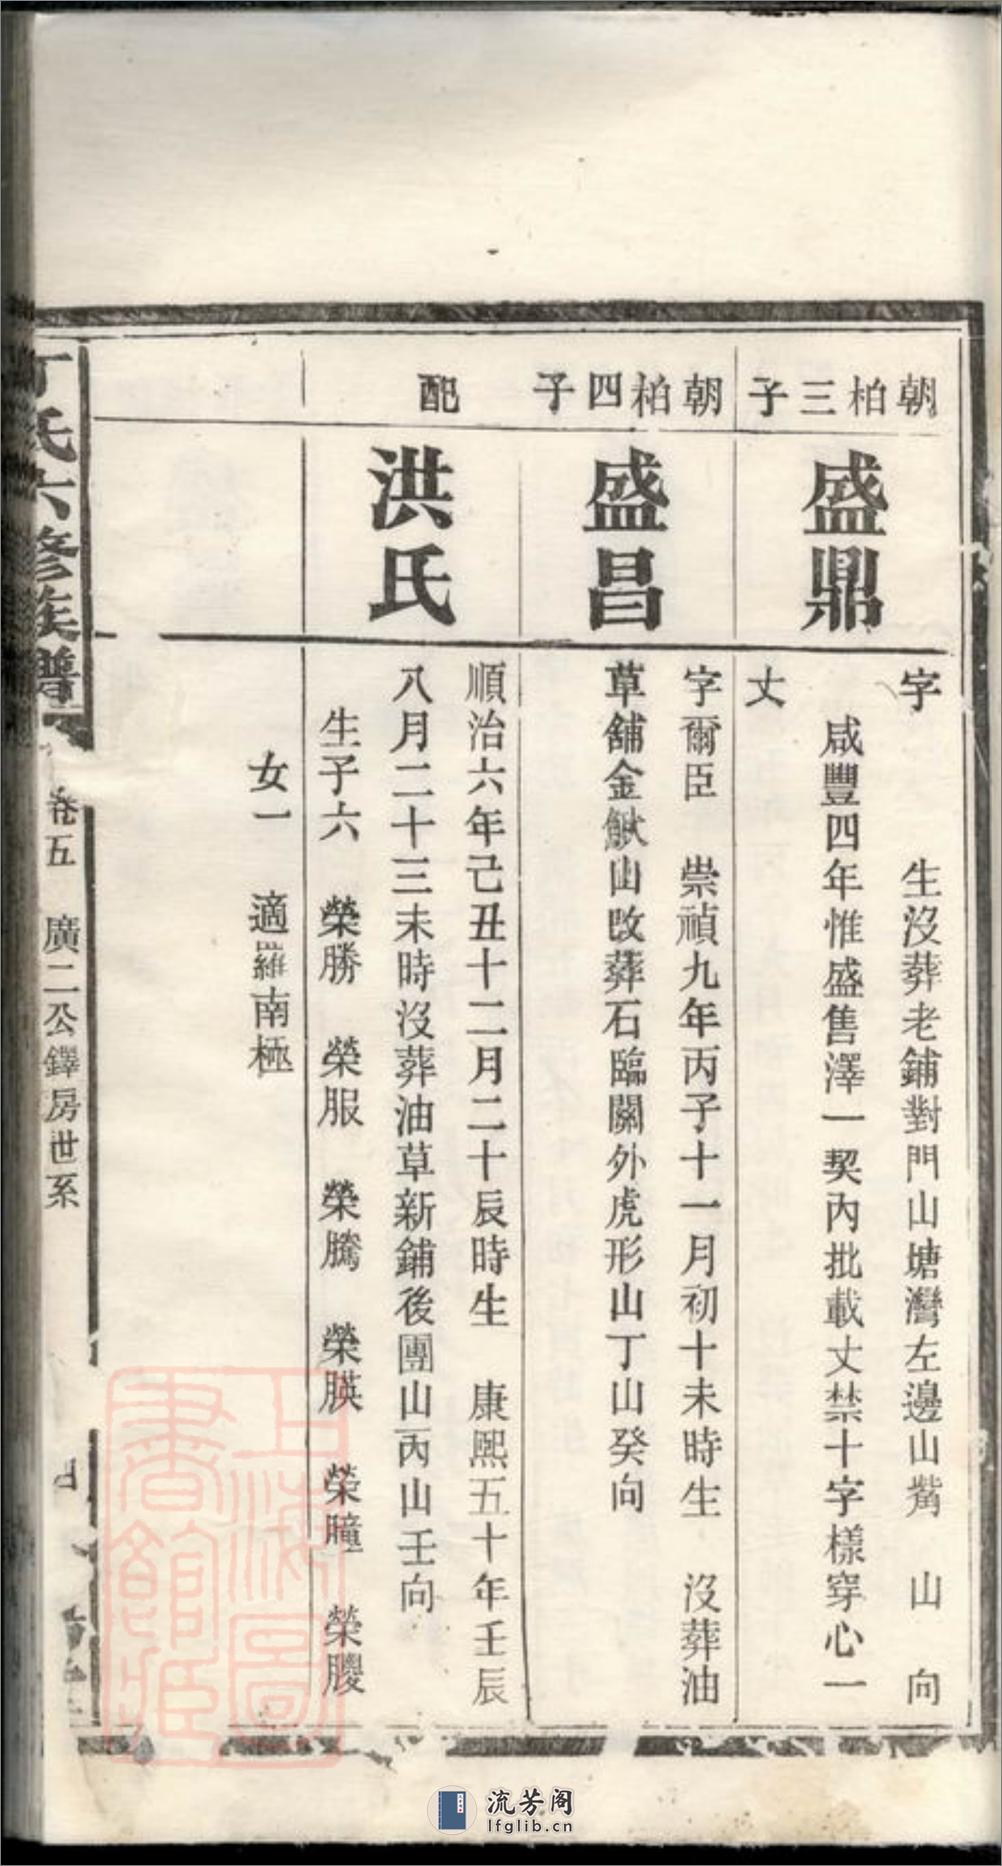 朝柏三子
盛鼎
字　　　生沒葬老鋪對門山塘灣左邊山觜　山　向
咸豐四年惟盛售澤一契內批載丈禁十字樣穿心一
丈
朝柏四子
盛昌
字爾臣　崇禎九年丙子十一月初十未時生　沒葬油
草舖金鰍山改葬石臨關外虎形山丁山癸向
配
洪氏
順治六年己丑十二月二十辰時生　康熙五十年壬辰
八月二十三未時沒葬油草新鋪後團山丙山壬向
生子六　榮勝　榮服　榮騰　榮朠　榮朣　榮
女一　適羅南極
丁氏六修族譜
卷五　廣二公鐸房世系
上海圖書館藏
流芳阁
lfglib.cn